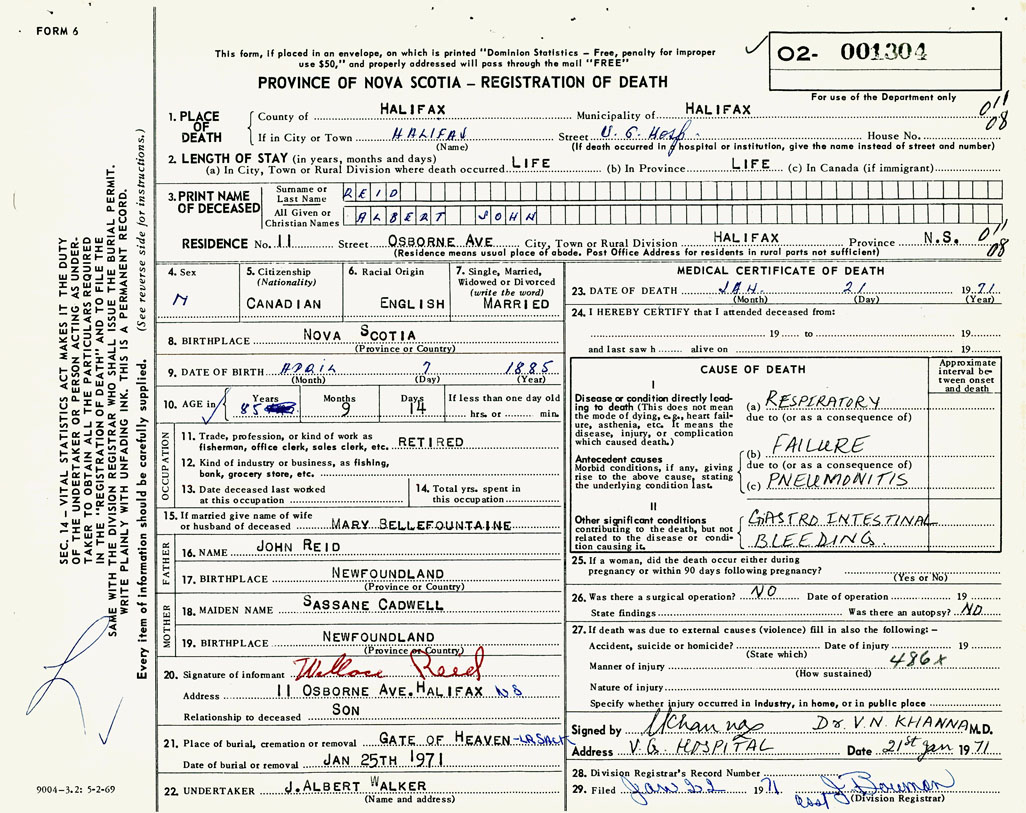 FORM 6
This form, if placed in an envelope, on which is printed "Dominion Statistics – Free, penalty for improper
use $50," and properly addressed will pass through the mail "FREE"
PROVINCE OF NOVA SCOTIA – REGISTRATION OF DEATH
02- 001304
For use of the Department only
011
08
1. PLACE OF DEATH
County of HALIFAX Municipality of HALIFAX
If in City or Town HALIFAX Street V. G. Hosp. House No.
(Name) (If death occurred in hospital or institution, give the name instead of street and number)
2. LENGTH OF STAY (in years, months and days)
(a) In City, Town or Rural Division where death occurred LIFE (b) In Province LIFE (c) In Canada (if immigrant)
3. PRINT NAME OF DECEASED
Surname or Last Name REID
All Given or Christian Names ALBERT JOHN
RESIDENCE No. 11 Street OSBORNE AVE City, Town or Rural Division HALIFAX Province N.S. 011
08
(Residence means usual place of abode. Post Office Address for residents in rural parts not sufficient)
4. Sex M
5. Citizenship (Nationality) CANADIAN
6. Racial Origin ENGLISH
7. Single, Married, Widowed or Divorced (write the word) MARRIED
8. BIRTHPLACE NOVA SCOTIA
(Province or Country)
9. DATE OF BIRTH APRIL 7 1885
(Month) (Day) (Year)
10. AGE in Years 85 Months 9 Days 14 If less than one day old hrs. or min.
OCCUPATION
11. Trade, profession, or kind of work as
fisherman, office clerk, sales clerk, etc. RETIRED
12. Kind of industry or business, as fishing,
bank, grocery store, etc.
13. Date deceased last worked
at this occupation
14. Total yrs. spent in
this occupation
15. If married give name of wife
or husband of deceased MARY BELLEFOUNTAINE
FATHER
16. NAME JOHN REID
17. BIRTHPLACE NEWFOUNDLAND
(Province or Country)
MOTHER
18. MAIDEN NAME SASSANE CADWELL
19. BIRTHPLACE NEWFOUNDLAND
(Province or Country)
20. Signature of informant Wallace Reid
Address 11 OSBORNE AVE. HALIFAX NS
Relationship to deceased SON
21. Place of burial, cremation or removal GATE OF HEAVEN-LR SACK
Date of burial or removal JAN 25TH 1971
22. UNDERTAKER J. ALBERT WALKER
(Name and address)
MEDICAL CERTIFICATE OF DEATH
23. DATE OF DEATH JAN. 21 1971
(Month) (Day) (Year)
24. I HEREBY CERTIFY that I attended deceased from:
19 to 19
and last saw h alive on 19
CAUSE OF DEATH
Approximate interval between onset and death
I
Disease or condition directly leading
to death (This does not mean
the mode of dying, e.g., heart failure,
asthenia, etc. It means the
disease, injury, or complication
which caused death.)
(a) RESPIRATORY
due to (or as a consequence of)
Antecedent causes
Morbid conditions, if any, giving
rise to the above cause, stating
the underlying condition last.
(b) FAILURE
due to (or as a consequence of)
(c) PNEUMONITIS
II
Other significant conditions
contributing to the death, but not
related to the disease or condition
causing it.
GASTRO INTESTINAL
BLEEDING.
25. If a woman, did the death occur either during
pregnancy or within 90 days following pregnancy?
(Yes or No)
26. Was there a surgical operation? NO Date of operation 19
State findings Was there an autopsy? NO
27. If death was due to external causes (violence) fill in also the following: –
Accident, suicide or homicide? Date of injury 19
(State which) 486x
Manner of injury
(How sustained)
Nature of injury
Specify whether injury occurred in industry, in home, or in public place
Signed by VKhanna DR. V.N. KHANNA M.D.
Address V.G. HOSPITAL Date 21st Jan 1971
28. Division Registrar's Record Number
29. Filed Jan 22 1971 asst J Bowman
(Division Registrar)
SEC. 14 – VITAL STATISTICS ACT MAKES IT THE DUTY
OF THE UNDERTAKER OR PERSON ACTING AS UNDERTAKER
TO OBTAIN ALL THE PARTICULARS REQUIRED
IN THE "REGISTRATION OF DEATH" AND TO FILE THE
SAME WITH THE DIVISION REGISTRAR WHO SHALL ISSUE THE BURIAL PERMIT.
WRITE PLAINLY WITH UNFADING INK. THIS IS A PERMANENT RECORD.
Every item of information should be carefully supplied. (See reverse side for instructions.)
9004-3.2: 5-2-69